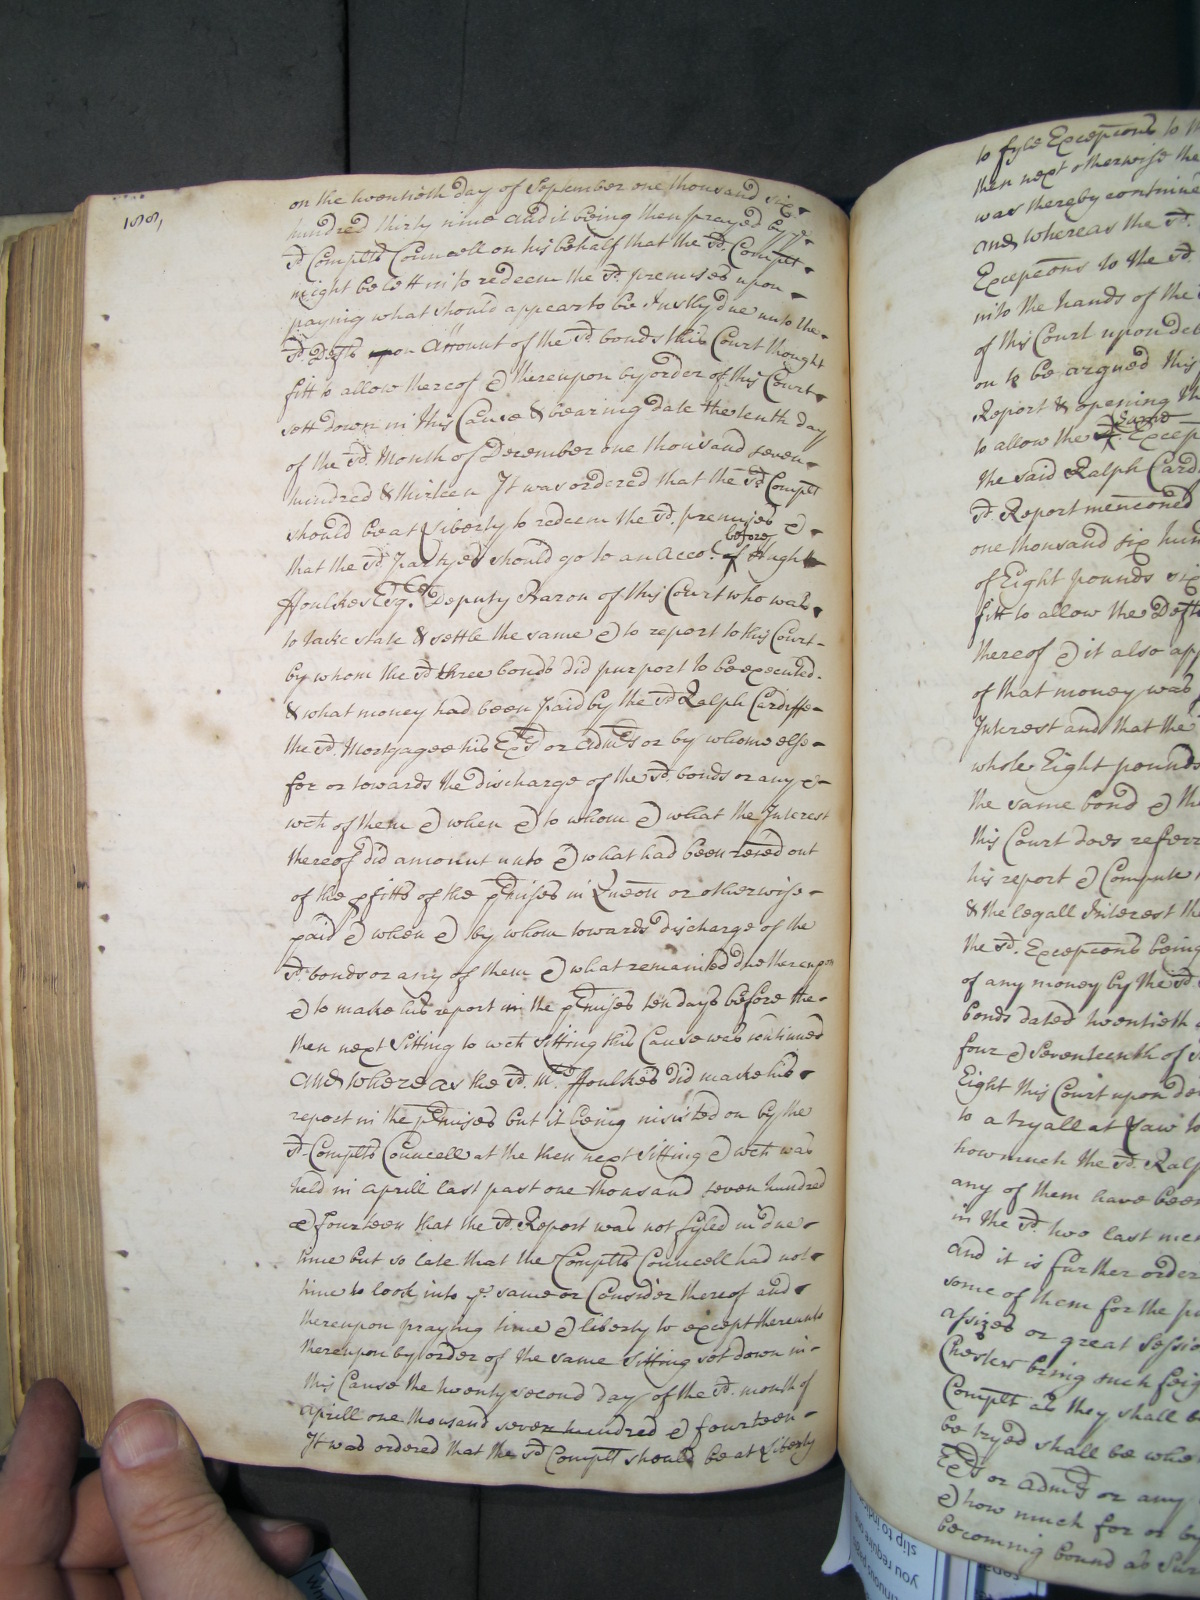 188,
on the twentieth day of September one thousand six
hundred thirty nine And it being then prayed by ye
sd. Complts Councell on his behalf that the sd. Complt
might be lett in to redeem the sd. premises upon
paying what should appear to be Justly due unto the
sd. Defts upon Account of the sd. bonds this Court thought
fitt to allow thereof & thereupon by order of this Court
sett down in this Cause & bearing date the tenth day
of the sd. Month of December one thousand seven
hundred & thirteen It was ordered that the sd. Complt
should be at Liberty to redeem the sd. premises &
that the sd. partyes should go to an Acco. before Hugh
ffoulkes Esqr. Deputy Baron of this Court who was
to take state & settle the same & to report to this Court
by whom the sd. three bonds did purport to be executed
& what money had been paid by the sd. Ralph Cardiffe
the sd. Mortgagee his Exrs or Admrs or by whome else
for or towards the discharge of the sd. bonds or any &
wch of them & when & to whom & what the Interest
thereof did amount unto & what had been reced out
of the pfitts of the pmises in Queon or otherwise
paid & when & by whom towards discharge of the
sd. bonds or any of them & what remained due thereupon
& to make his report in the pmises ten days before the
then next Sitting to wch Sitting this Cause was continued
And whereas the sd. Mr. ffoulkes did make his
report in the pmises but it being insisted on by the
sd. Complts Councell at the then next Sitting & wch was
held in Aprill last past one thousand seven hundred
& fourteen that the sd. Report was not fyled in due
time but so late that the Complts Councell had not
time to look into ye. same or Consider thereof and
thereupon praying time & liberty to except thereunto
thereupon by order of the same Sitting set down in
this Cause the twenty second day of the sd. month of
Aprill one thousand seven hundred & fourteen
It was ordered that the sd Complt should be at Liberty
to fyle Excepcons to th
then next otherwise the
was thereby continue
and whereas the sd.
Excepcons to the sd.
into the hands of the
of this Court upon deb
on to be argued this
Report & opening th
to allow the second Excep
the said Ralph Card
sd. Report mencioned
one thousand six hun
of Eight pounds six
fitt to allow the Defts
thereof & it also app
of that money was
Interest and that the
whole Eight pounds
the same bond & the
this Court does referr
his report & Compute
& the legall Interest the
the sd. Excepcons being
of any money by the sd.
bonds dated twentieth
four & Seventeenth of
Eight this Court upon de
to a tryall at Law to
how much the sd. Ralp
any of them have been
in the sd. two last men
And it is further order
some of them for the pu
Assizes or great Sessio
Chester being such feig
Complt as they shall b
be tryed shall be whe
Exrs or Admrs or any
& how much for or by
becoming bound as Sur